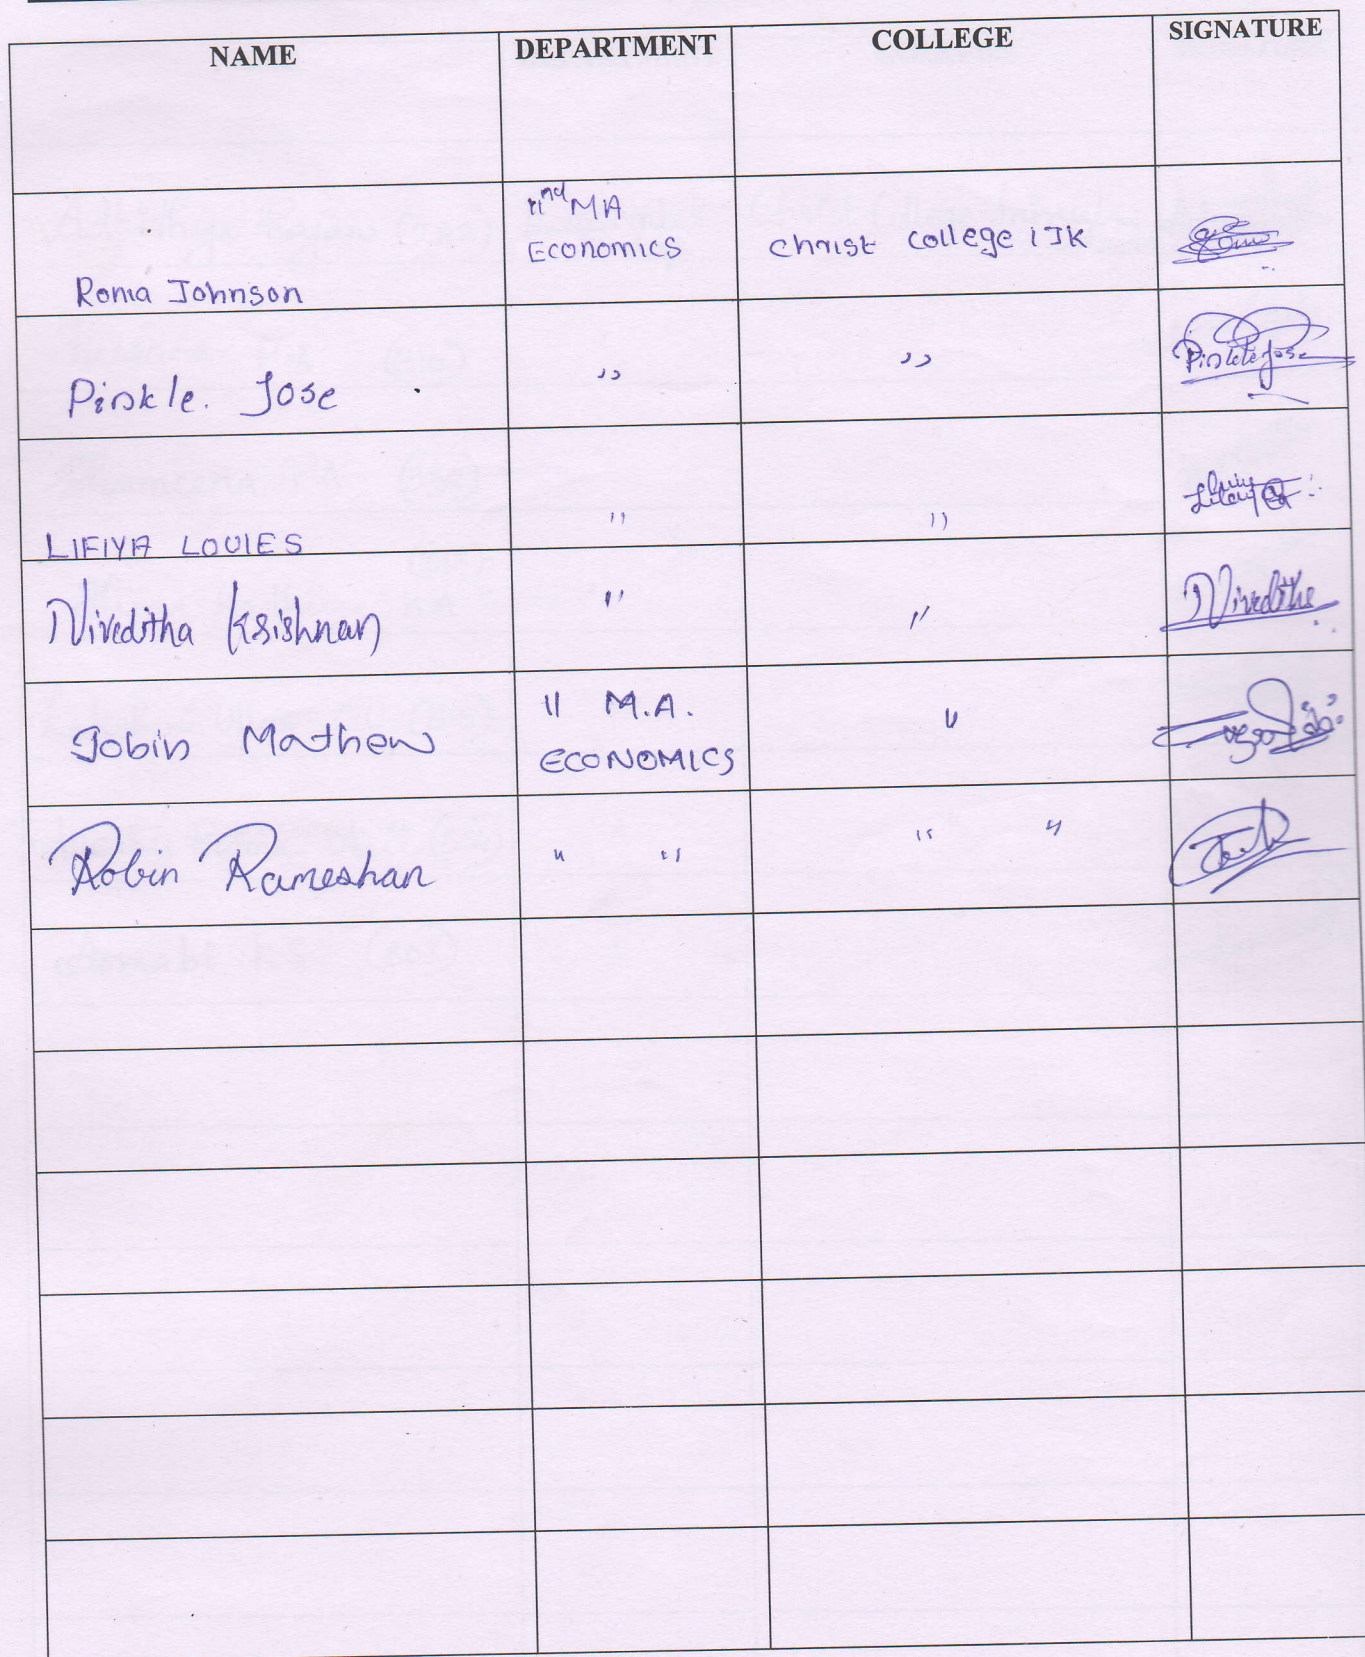 NAME DEPARTMENT COLLEGE SIGNATURE
IInd MA
Economics Christ College IJK
Roma Johnson
Pinkle. Jose ,, ,, Pinkle Jose
LIFIYA LOUIES " "
Niveditha Krishnan " " Niveditha
Jobin Mathew II M.A. "
ECONOMICS
Robin Rameshan " " " "